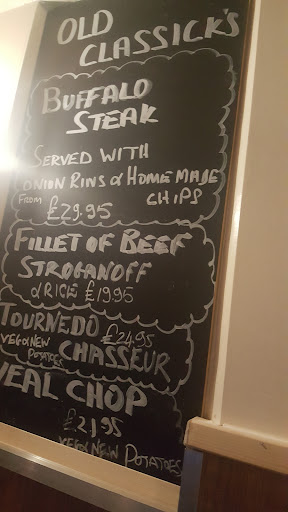 OLD
CLASSICK'S
BUFFALO
STEAK
SERVED WITH
ONION RINS & HOMEMADE
FROM £29.95 CHIPS
FILLET OF BEEF
STROGANOFF
& RICE £19.95
TOURNEDO £24.95
VEG & NEW
POTATOES CHASSEUR
VEAL CHOP
£21,95
VEG & NEW POTATOES